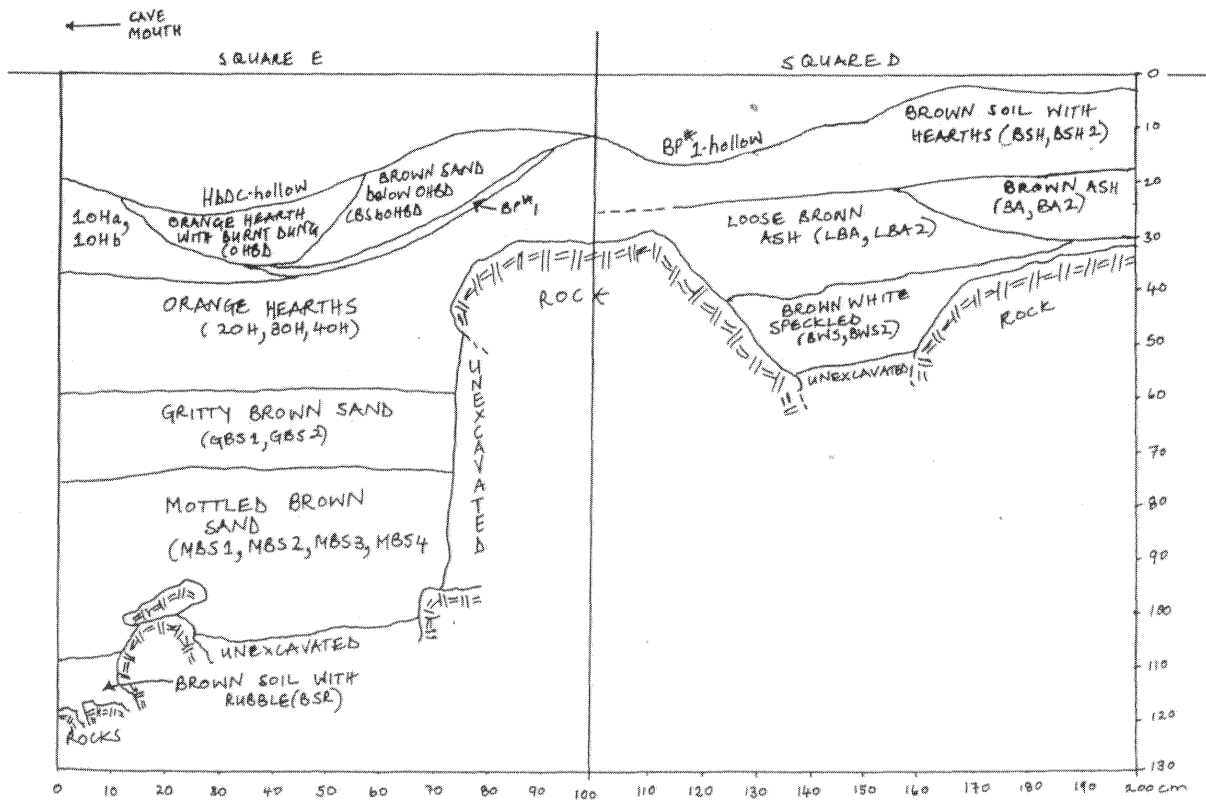 CAVE
MOUTH
SQUARE E
SQUARE D
0
10
20
30
40
50
60
70
80
90
100
110
120
130
BROWN SOIL WITH
HEARTHS (BSH, BSH2)
BP#1-hollow
HBDC-hollow
BROWN SAND
below OHBD
(BSbOHBD
BP#1
1OHa,
1OHb
ORANGE HEARTH
WITH BURNT DUNG
(OHBD
BROWN ASH
(BA, BA2)
LOOSE BROWN
ASH (LBA, LBA2)
ORANGE HEARTHS
(2OH, 3OH, 4OH)
ROCK
BROWN WHITE
SPECKLED
(BWS, BWS2)
ROCK
UNEXCAVATED
UNEXCAVATED
GRITTY BROWN SAND
(GBS1, GBS2)
MOTTLED BROWN
SAND
(MBS1, MBS2, MBS3, MBS4
UNEXCAVATED
BROWN SOIL WITH
RUBBLE (BSR)
ROCKS
0 10 20 30 40 50 60 70 80 90 100 110 120 130 140 150 160 170 180 190 200 cm